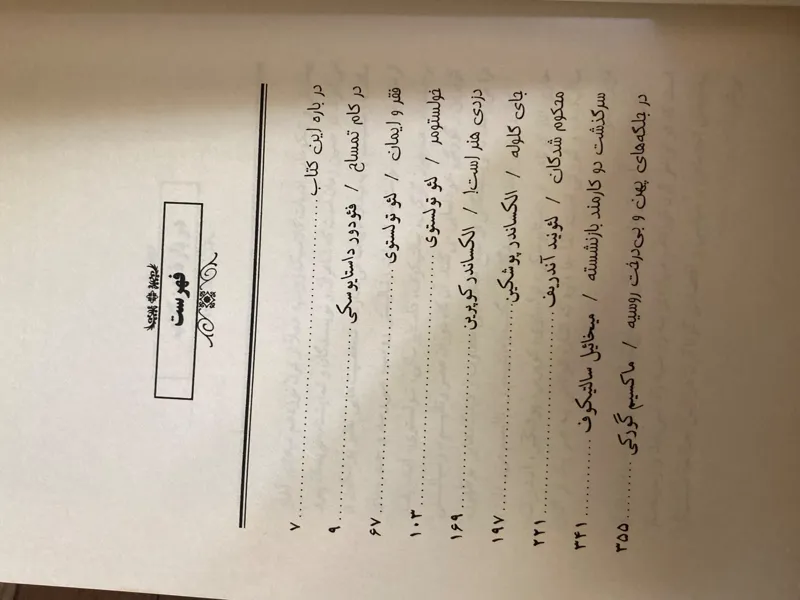 فهرست
در باره این کتاب ........ ۷
در کام تمساح / فئودور داستایوسکی ........ ۹
فقر و ایمان / لئو تولستوی ........ ۶۷
خولستومر / لئو تولستوی ........ ۱۰۳
دزدی هنر است! / الکساندر کوپرین ........ ۱۶۹
جای گلوله / الکساندر پوشکین ........ ۱۹۷
محکوم شدگان / لئونید آندریف ........ ۲۲۱
سرگذشت دو کارمند بازنشسته / میخائیل سالتیکوف ........ ۳۴۱
در جلگه‌های پهن و بی‌درخت روسیه / ماکسیم گورکی ........ ۳۵۵